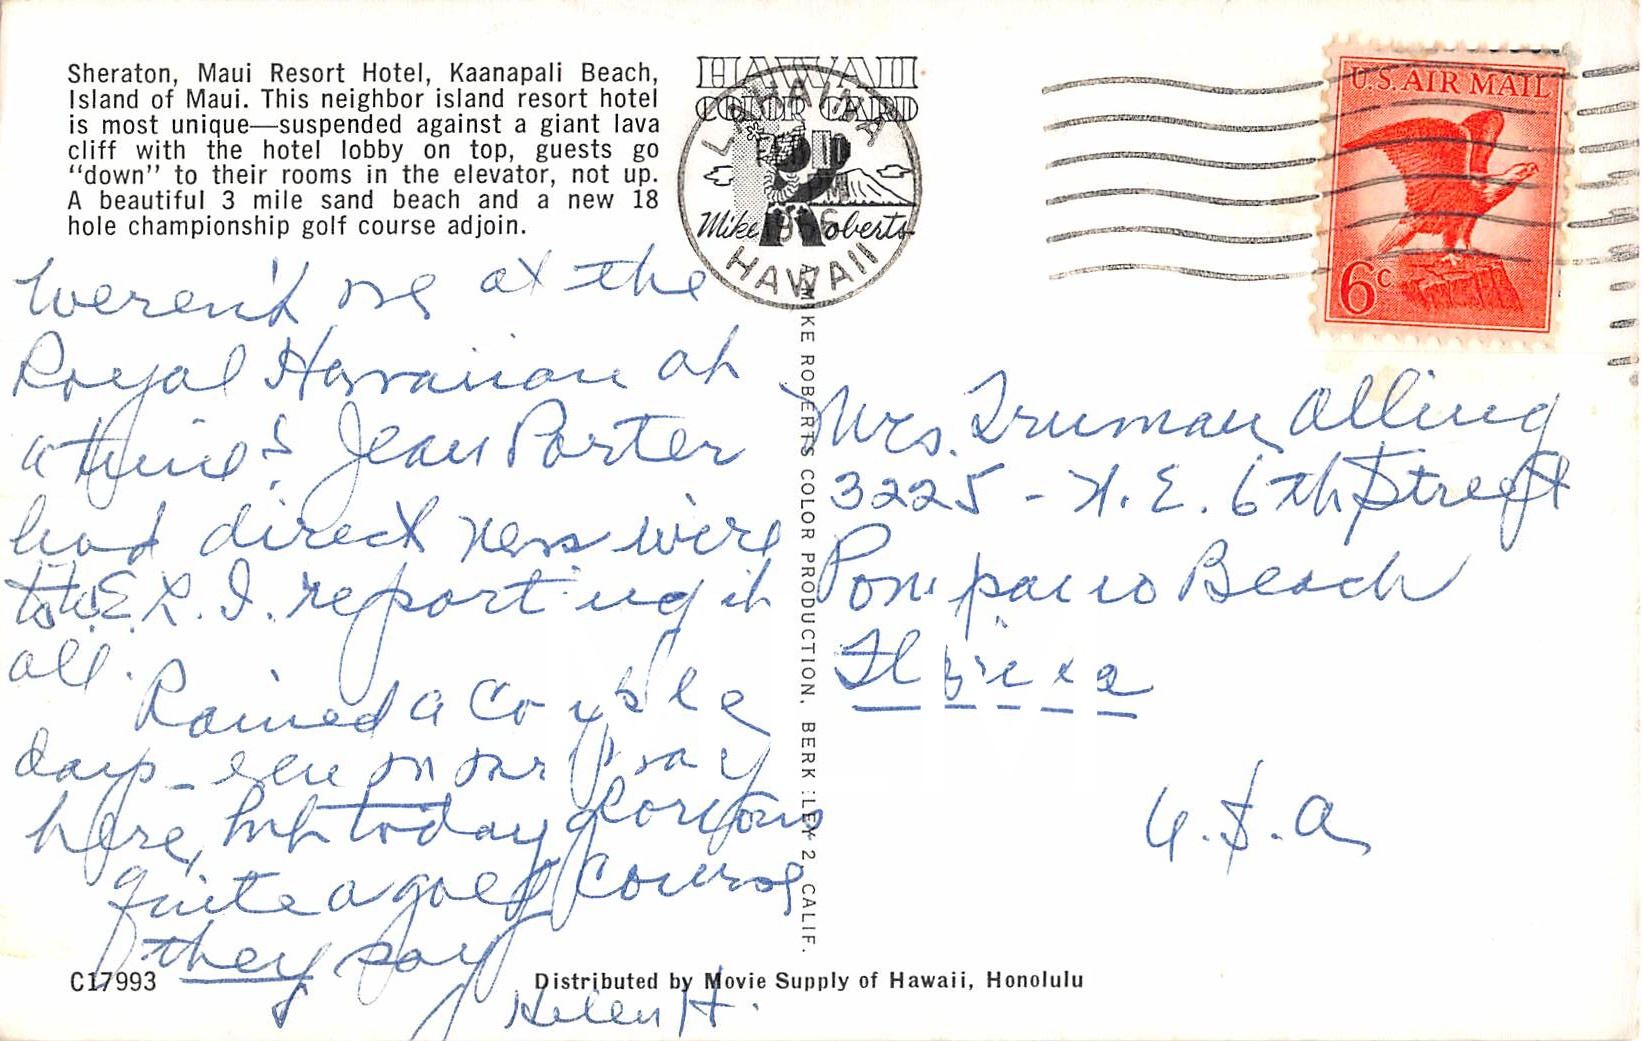 Sheraton, Maui Resort Hotel, Kaanapali Beach,
Island of Maui. This neighbor island resort hotel
is most unique—suspended against a giant lava
cliff with the hotel lobby on top, guests go
“down” to their rooms in the elevator, not up.
A beautiful 3 mile sand beach and a new 18
hole championship golf course adjoin.
HAWAII
COLOR CARD
LAHAINA
Mike Roberts
HAWAII
U.S. AIR MAIL
6c
Weren't we at the
Royal Hawaiian at
a time? Jean Porter
had direct news wire
to E.R.I. reporting it
all.
Rained a couple
days - even on our way
here, but today gorgeous
Quite a golf course
they say
Helen H.
MIKE ROBERTS COLOR PRODUCTION, BERKELEY 2, CALIF.
Mrs. Truman Alling
3225 - N.E. 6th Street
Pompano Beach
Florida
U.S.A
C17993
Distributed by Movie Supply of Hawaii, Honolulu